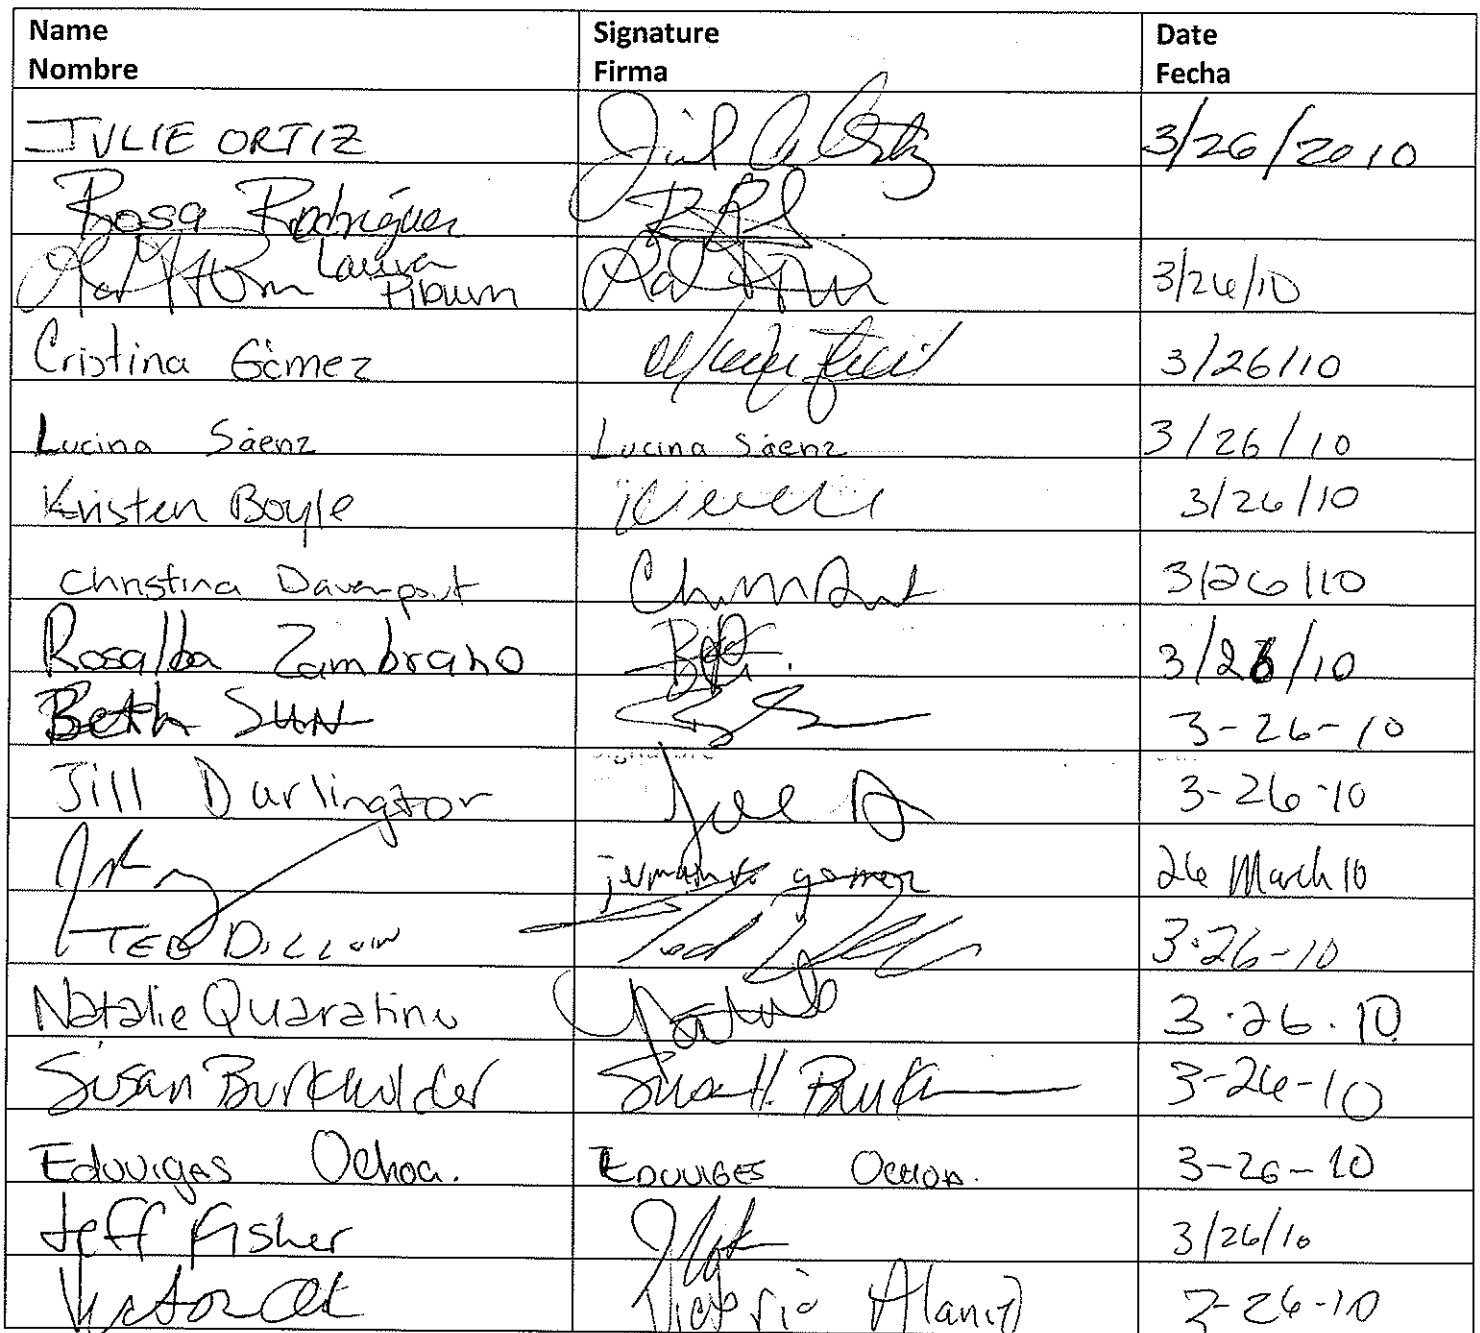 Name Signature Date
Nombre Firma Fecha
JULIE ORTIZ 3/26/2010
Rosa Rodríguez
Laura 3/26/10
Piburn
Cristina Gómez 3/26/10
Lucina Sáenz Lucina Sáenz 3/26/10
Kristen Boyle 3/26/10
Christina Davenport 3/26/10
Rosalba Zambrano 3/26/10
Beth SUN 3-26-10
Jill Darlington Jill D 3-26-10
gomez 26 March 10
TED DILLON Ted 3-26-10
Natalie Quaratino Natalie 3.26.10
Susan Burkholder Susan H. 3-26-10
Eduviges Ochoa. EDUVIGES OCHOA. 3-26-10
Jeff Fisher 3/26/10
Victoria Alaniz 3-26-10